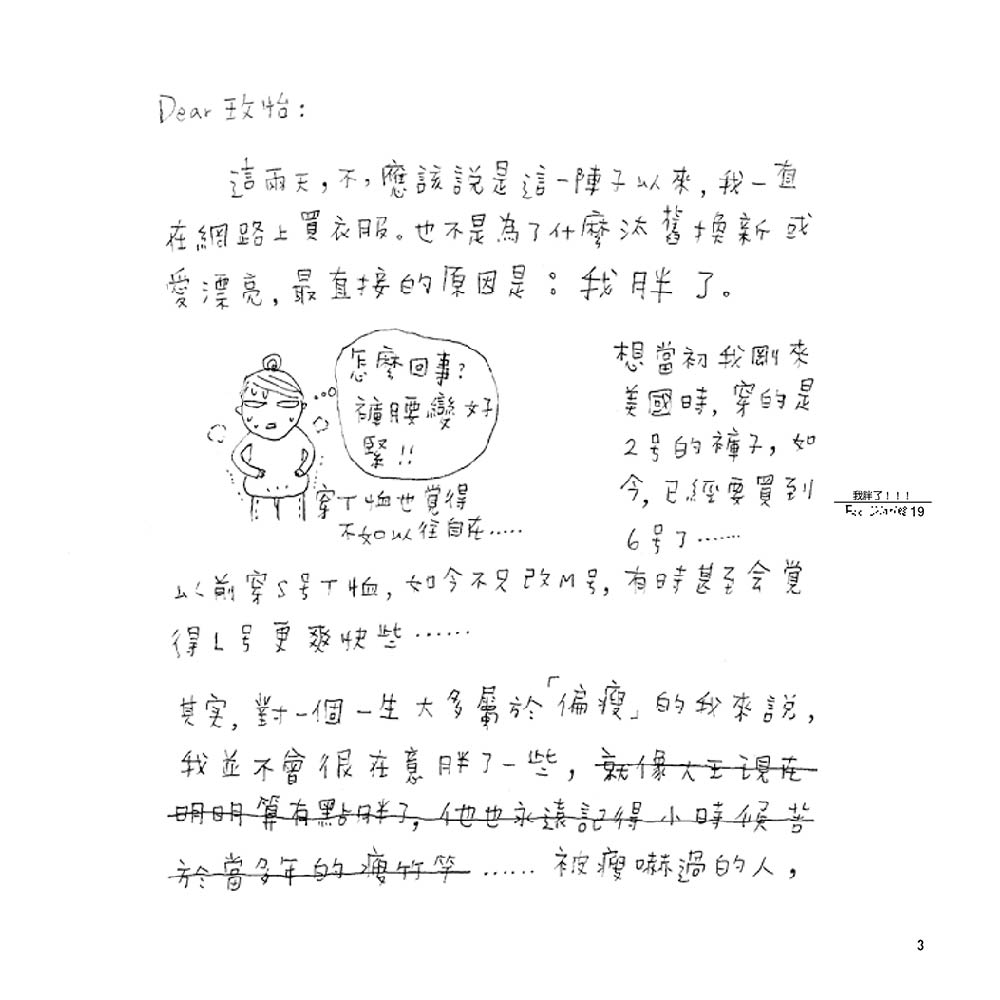 Dear 玫怡：
這兩天，不，應該說是這一陣子以來，我一直
在網路上買衣服。也不是為了什麼汰舊換新或
愛漂亮，最直接的原因是：我胖了。
怎麼回事？
褲腰變好
緊！！
穿T恤也覺得
不如以往自在……
想當初我剛來
美國時，穿的是
2号的褲子，如
今，已經要買到
6号了……
以前穿S号T恤，如今不只改M号，有時甚至會覺
得L号更爽快些……
其实，對一個一生大多屬於「偏瘦」的我來說，
我並不會很在意胖了一些，就像大王現在
明明算有點胖了，他也永遠記得小時候苦
於當多年的瘦竹竿……被瘦嚇過的人，
我胖了！！！
19
3